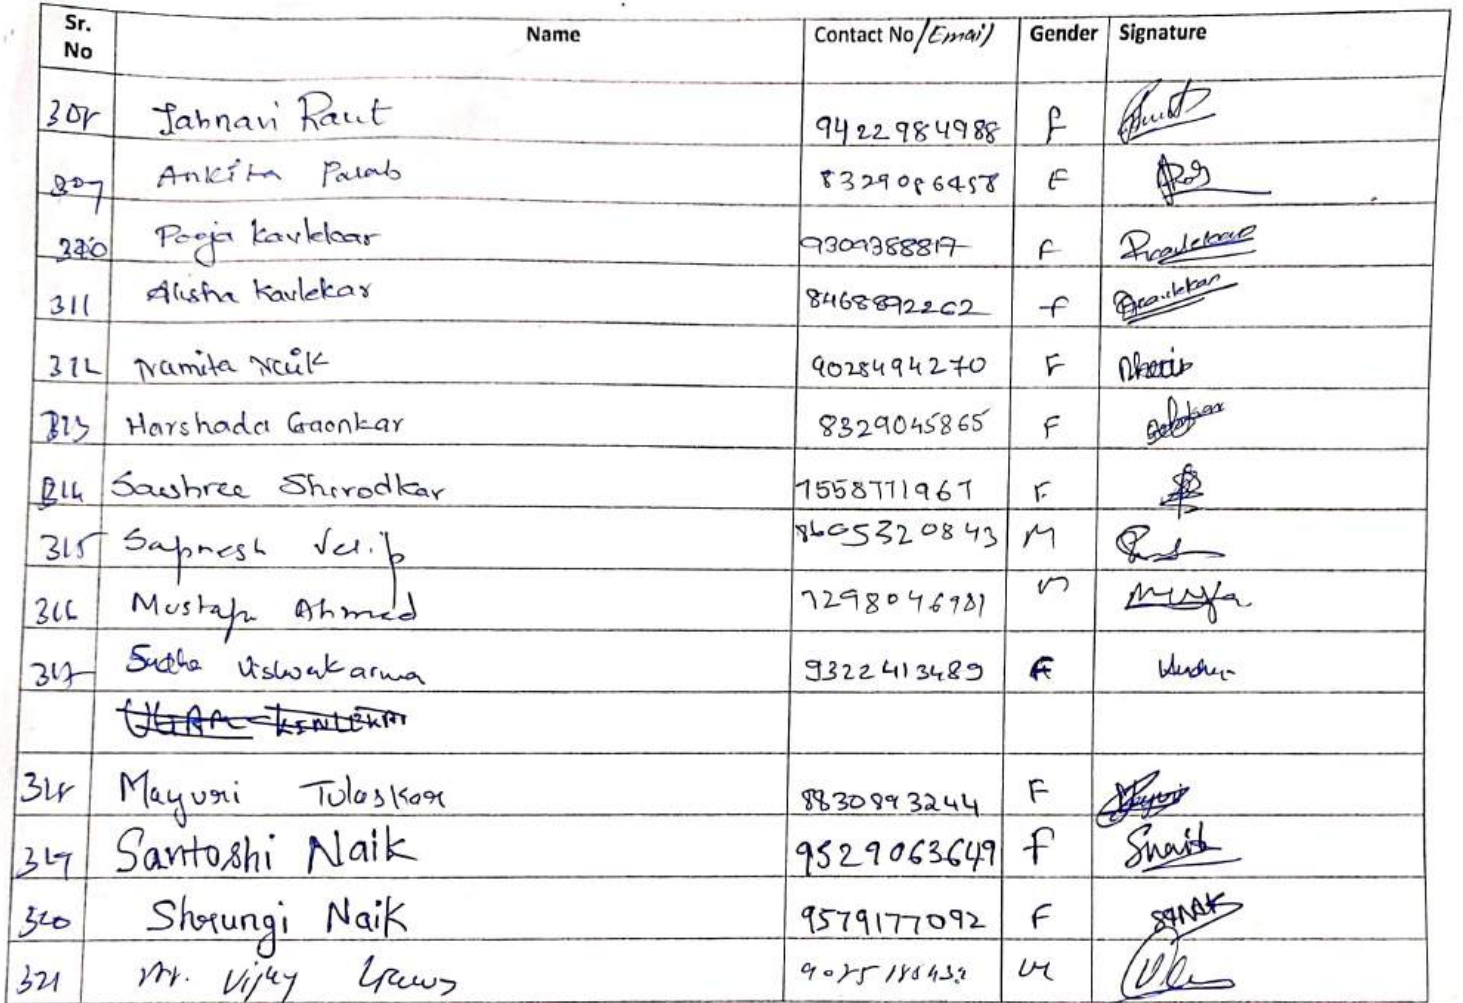 Sr. No Name Contact No/Email) Gender Signature
308 Jahnavi Raut 9422984988 F
309 Ankita Parab 8329086458 F
310 Pooja Kavlekar 9309388817 F
311 Alisha Kavlekar 8468892262 f
312 Namita Naik 9028494270 F
313 Harshada Gaonkar 8329045865 F
314 Saishree Shirodkar 7558771967 F
315 Sapnesh Velip 8605320843 M
316 Mustafa Ahmed 7298046981 M
317 Sudha Vishwakarma 9322413489 F
318 Mayuri Tulaskar 8830893244 F
319 Santoshi Naik 9529063649 f Snaik
320 Shrungi Naik 9579177092 F
321 Mr. Vijay M